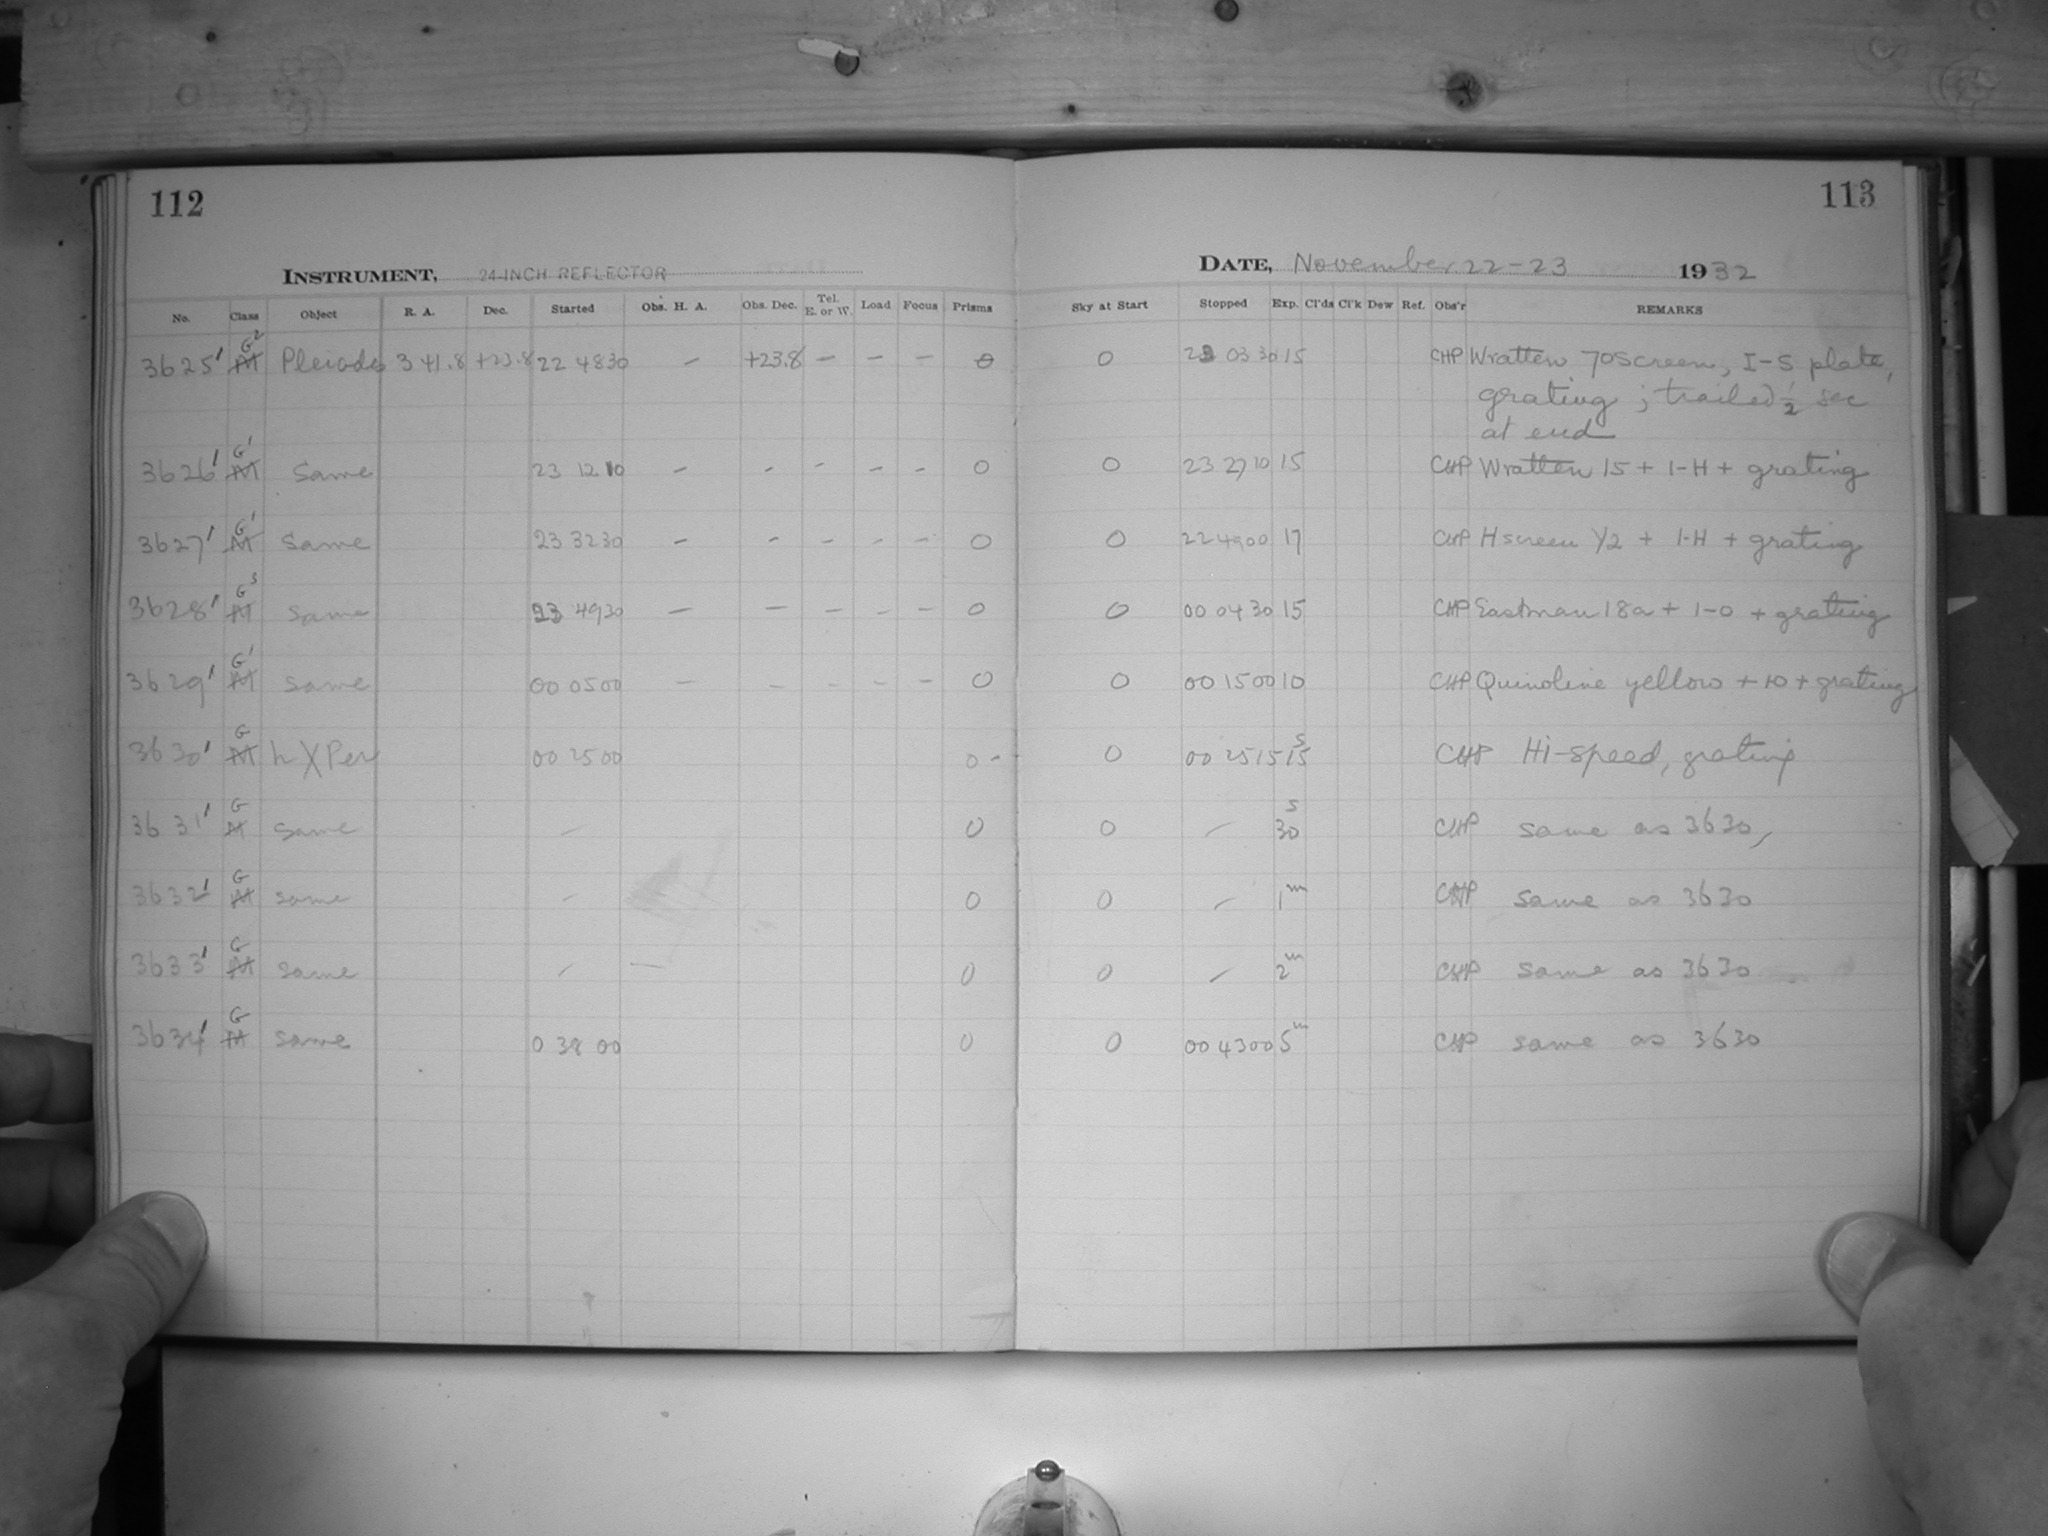 112
INSTRUMENT, 24-INCH REFLECTOR
No. Class Object R. A. Dec. Started Obs. H. A. Obs. Dec. Tel. E. or W. Load Focus Prisms
3625' G2 Pleiades 3 41.8 +23.8 22 48 30 – +23.8 – – – 0
3626' G' same 23 12 10 – – – – – 0
3627' G' same 23 32 30 – – – – – 0
3628' G3 same 23 49 30 – – – – – 0
3629' G' same 00 05 00 – – – – – 0
3630' G h X Per 00 25 00 0 -
3631' G same – 0
3632' G same – 0
3633' G same – — 0
3634' G same 0 38 00 0
113
DATE, November 22-23 1932
Sky at Start Stopped Exp. Cl'ds Cl'k Dew Ref. Obs'r REMARKS
0 23 03 30 15 CHP Wratten 70 screen, I-S plate,
grating ; trailed 1/2 sec
at end
0 23 27 10 15 CHP Wratten 15 + 1-H + grating
0 22 49 00 17 CHP H screen Y2 + 1-H + grating
0 00 04 30 15 CHP Eastman 18a + 1-0 + grating
0 00 15 00 10 CHP Quinoline yellow + 10 + grating
0 00 25 15 15s CHP Hi-speed, grating
0 – 30s CHP same as 3630,
0 – 1m CHP same as 3630
0 – 2m CHP same as 3630
0 00 43 00 5m CHP same as 3630